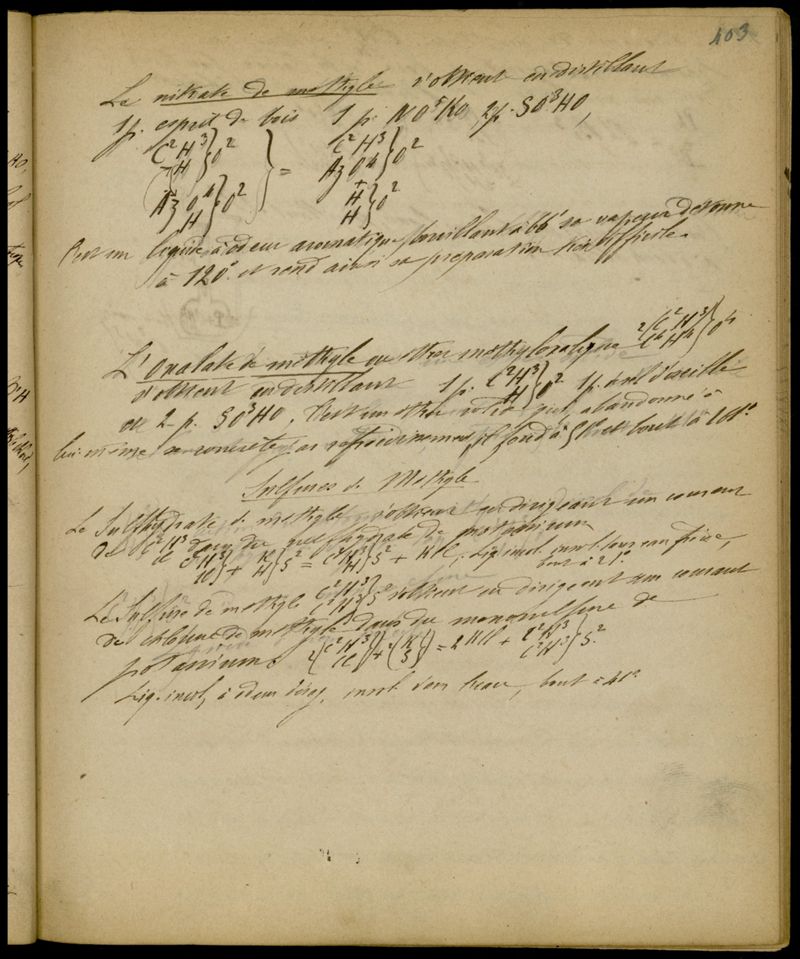 403
Le nitrate de méthyle s'obtient en distillant
1 p. esprit de bois 1 p. NO⁵KO, 2 p. SO³HO,
C²H³ } O² } = C²H³ } O²
H AzO⁴
+ +
AzO⁴ } O² H } O²
H H
C'est un liquide à odeur aromatique, bouillant à 66° sa vapeur détonne
à 120° et rend ainsi sa préparation très difficile.
L'oxalate de méthyle ou éther méthyloxalique 2(C²H³) } O⁴
C⁴O⁴
s'obtient en distillant 1 p. C²H³ } O² 1 p. sel d'oseille
H
et 2 p. SO³HO. C'est un éther solide qui, abandonné à
lui même se concrète par refroidissement, il fond à 51° et bout à 161°
Sulfures de Méthyle
Le Sulfhydrate de méthyle s'obtient en dirigeant un courant
de C²H³ dans du sulfhydrate de potassium
Cl
C²H³ } + K } S² = C²H³ } S² + KCl, Liq. incol. insol. dans
Cl H H
bout à 21°
Le Sulfure de méthyle C²H³ } S² s'obtient en dirigeant un courant
C²H³
de chlorure de méthyle dans du monosulfure de
potassium. 2(C²H³ } ) + 2(K } ) = 2KCl + C²H³ } S²
Cl S C²H³
Liq. incol, à odeur désag. insol. dans l'eau, bout à 41°